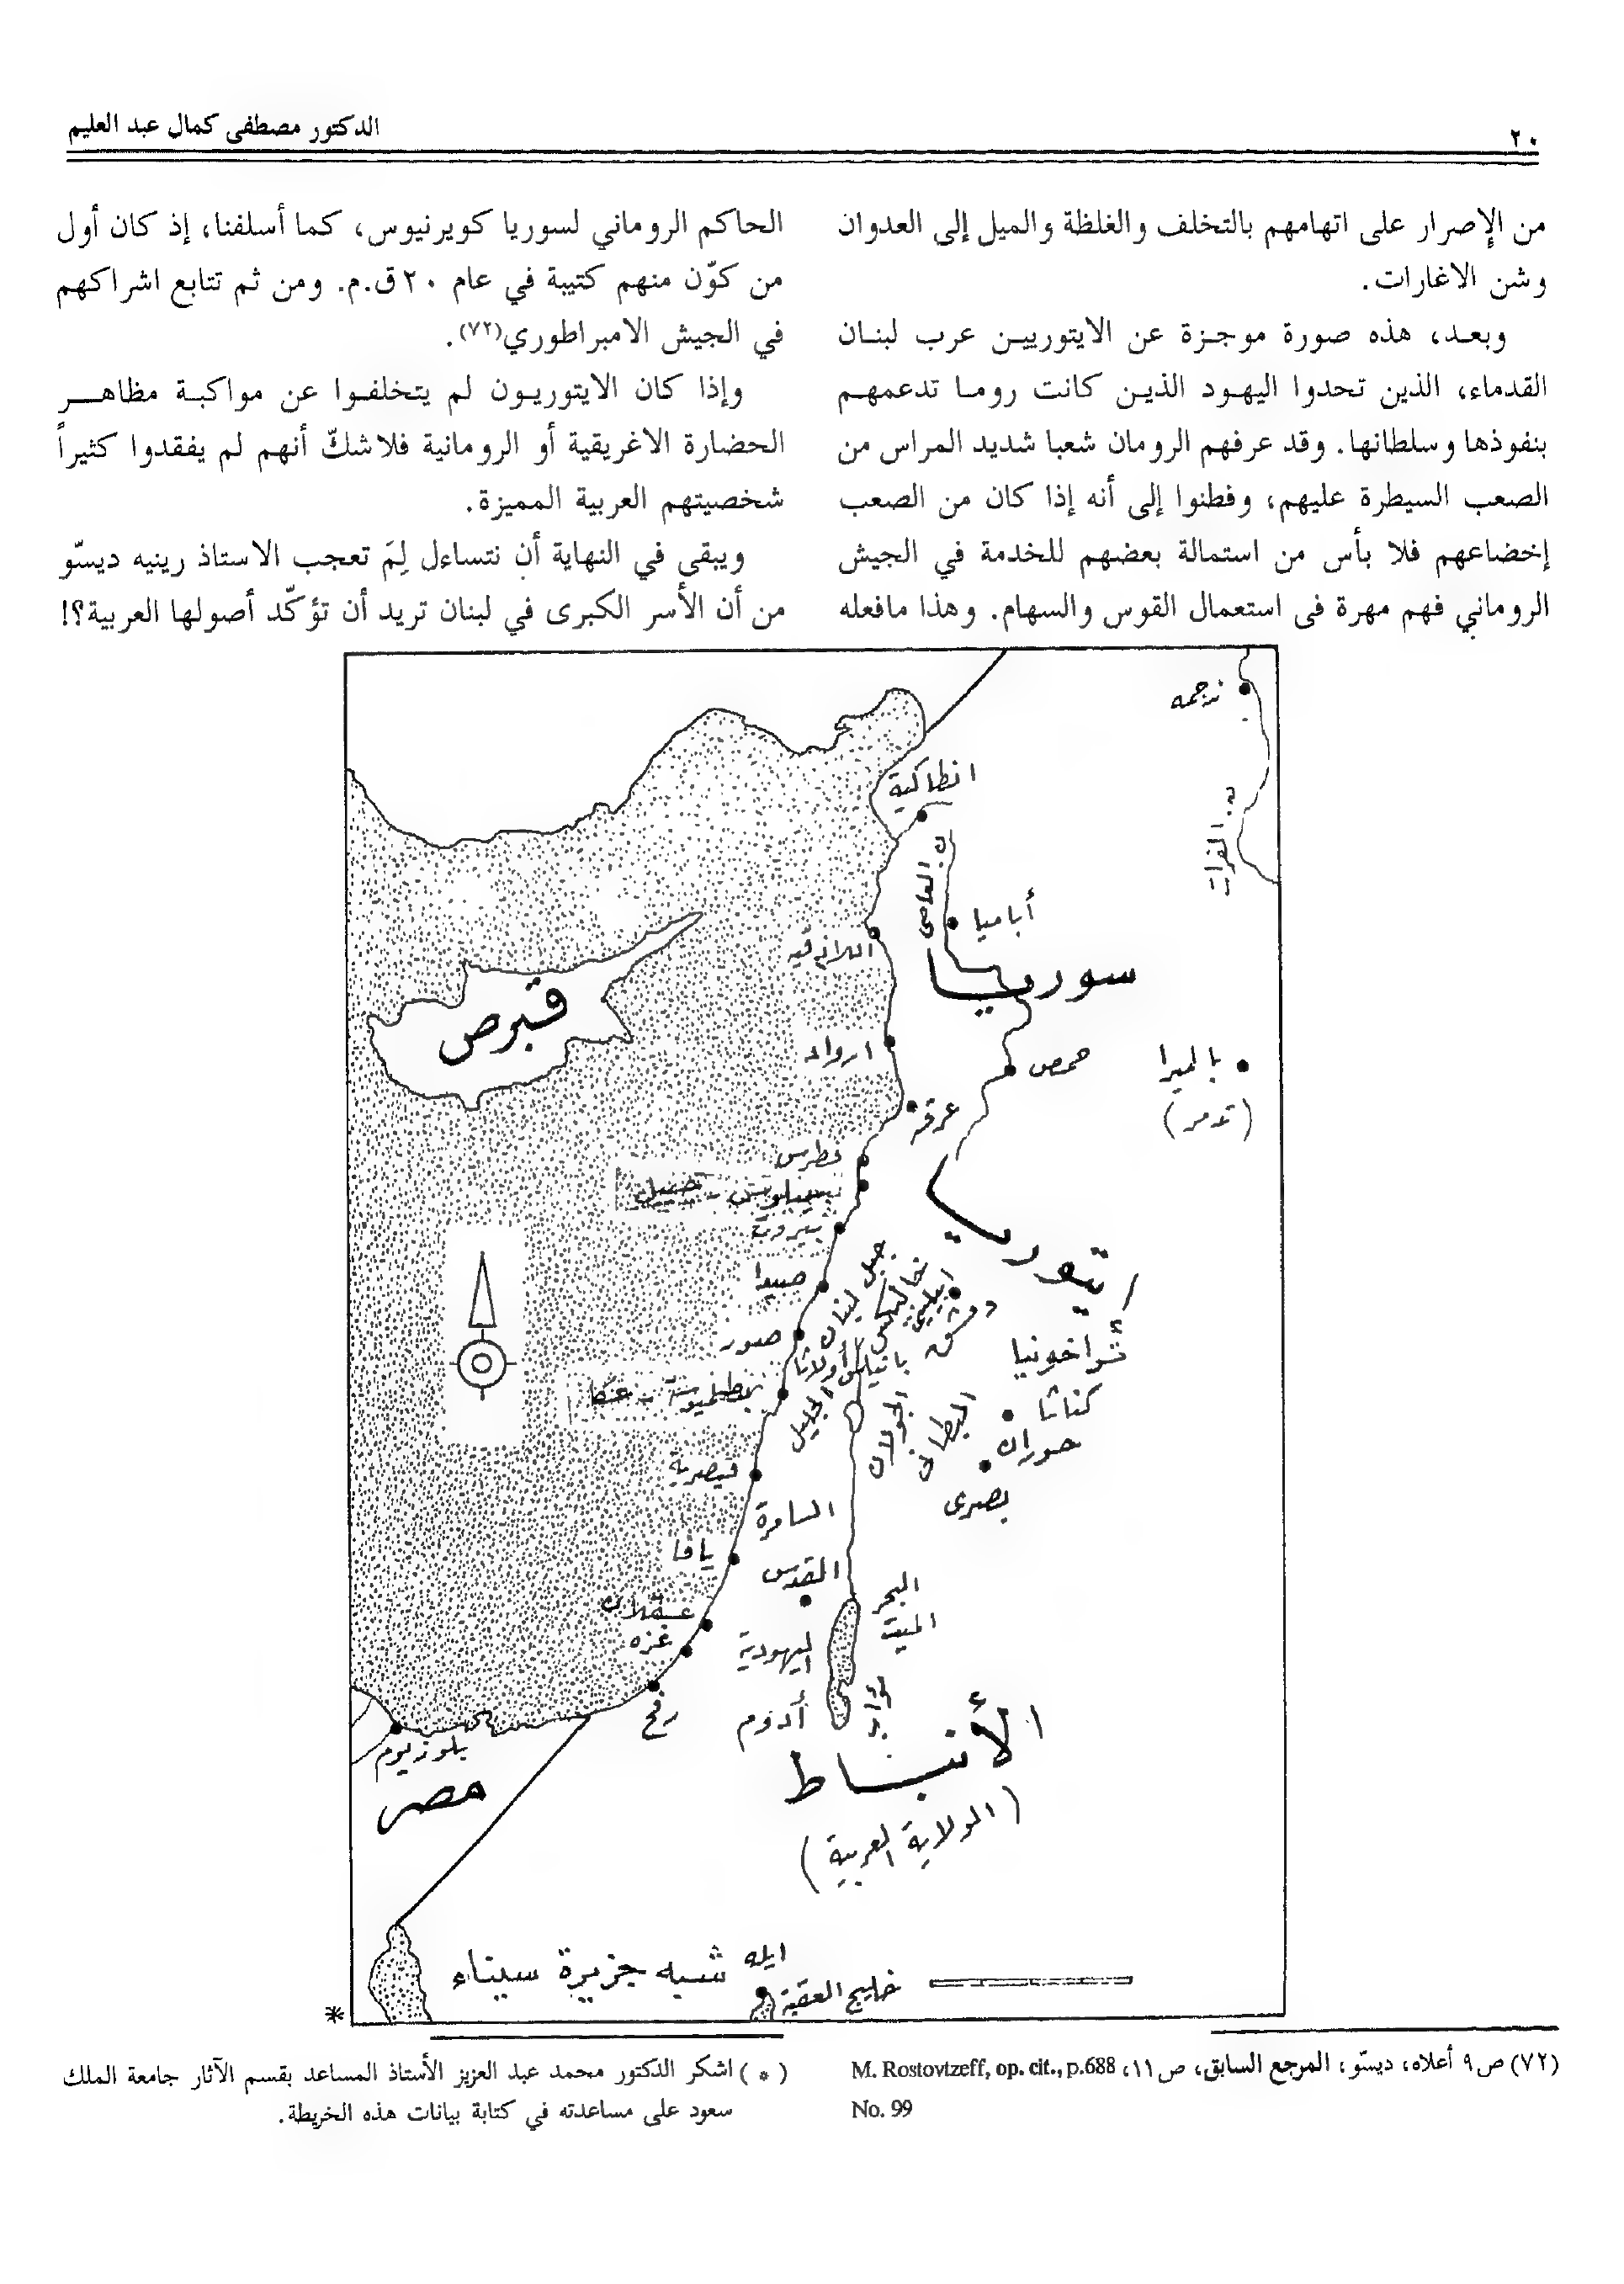 ٢٠
الدكتور مصطفى كمال عبد العليم
من الإصرار على اتهامهم بالتخلف والغلظة والميل إلى العدوان
وشن الاغارات.
وبعد، هذه صورة موجزة عن الايتوريين عرب لبنان
القدماء، الذين تحدوا اليهود الذين كانت روما تدعمهم
بنفوذها وسلطانها. وقد عرفهم الرومان شعبا شديد المراس من
الصعب السيطرة عليهم، وفطنوا إلى أنه إذا كان من الصعب
إخضاعهم فلا بأس من استمالة بعضهم للخدمة في الجيش
الروماني فهم مهرة فى استعمال القوس والسهام. وهذا مافعله
الحاكم الروماني لسوريا كويرنيوس، كما أسلفنا، إذ كان أول
من كوّن منهم كتيبة في عام ٢٠ق.م. ومن ثم تتابع اشراكهم
في الجيش الامبراطوري(٧٢).
وإذا كان الايتوريون لم يتخلفوا عن مواكبة مظاهر
الحضارة الاغريقية أو الرومانية فلاشكّ أنهم لم يفقدوا كثيراً
شخصيتهم العربية المميزة.
ويبقى في النهاية أن نتساءل لِمَ تعجب الاستاذ رينيه ديسّو
من أن الأسر الكبرى في لبنان تريد أن تؤكّد أصولها العربية؟!
انطاكية
ن. الفرات
ن العاصي
أباميا
اللاذقيه
سوريا
قبرص
ارواد
حمص
بالميرا
(تدمر)
عرقه
بطرس
بيبلوس - جبيل
بيروت
ايتوريا
صيدا
جبل لبنان
خالكيس
ابيلي
دمشق
صور
بانياس
أولاثا
تراخونيا
بطلميوسة - عكا
الجليل
الجولان
كناثا
حوران
قيصرية
بصرى
السامرة
يافا
القدس
البحر
الميت
عسقلان
غزه
اليهودية
رفح
أدوم
الأنباط
(الولاية العربية)
بلوزيوم
مصر
ايله
شبه جزيرة سيناء
خليج العقبة
*
(٧٢) ص٩ أعلاه، ديسّو، المرجع السابق، ص١١، M. Rostovtzeff, op. cit., p.688
No. 99
(*) اشكر الدكتور محمد عبد العزيز الأستاذ المساعد بقسم الآثار جامعة الملك
سعود على مساعدته في كتابة بيانات هذه الخريطة.